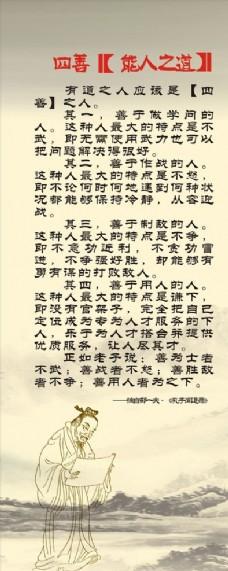 四善【能人之道】
有道之人应该是【四
善】之人。
其一，善于做学问的
人。这种人最大的特点是不
武，即无需使用武力也可以
把问题解决得很好。
其二，善于作战的人。
这种人最大的特点是不怒，
即不论何时何地遇到何种状
况都能够保持冷静，从容迎
战。
其三，善于制敌的人。
这种人最大的特点是不争，
即不急功近利，不贪功冒
进，不争强好胜，却能够有
勇有谋的打败敌人。
其四，善于用人的人。
这种人最大的特点是谦下，
即没有官架子，完全把自己
定位成为专为人才服务的下
人，乐于为人才搭台并提供
优质服务，让人尽其才。
正如老子说：善为士者
不武；善战者不怒；善胜敌
者不争；善用人者为之下。